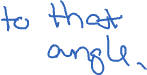 to that
angle.